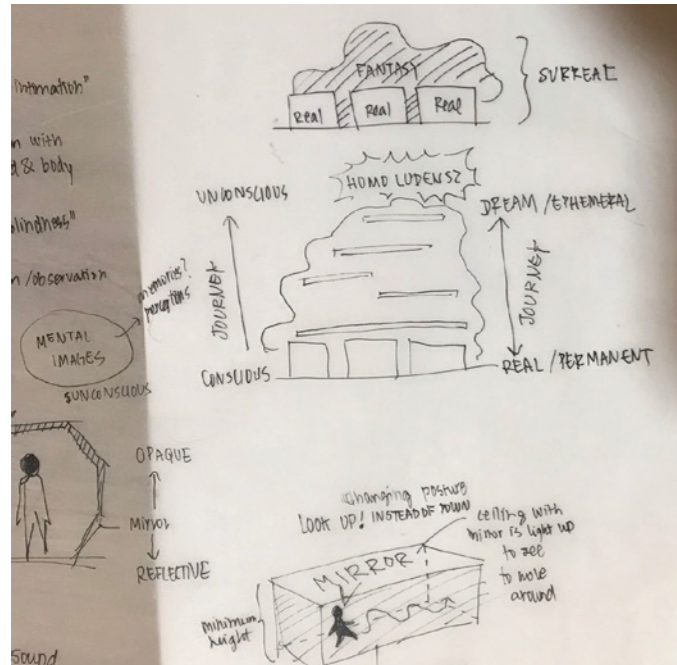 intimation"
n with
& body
blindness"
n/observation
MENTAL
IMAGES
memories?
perceptions
SUNCONSCIOUS
OPAQUE
Mirror
REFLECTIVE
Sound
FANTASY
Real
Real
Real
SURREAL
HOMO LUDENS?
UNCONSCIOUS
JOURNEY
CONSCIOUS
DREAM/EPHEMERAL
JOURNEY
REAL/PERMANENT
changing posture
LOOK UP! INSTEAD OF DOWN
ceiling with
mirror is light up
to see
to move
around
MIRROR
minimum
height